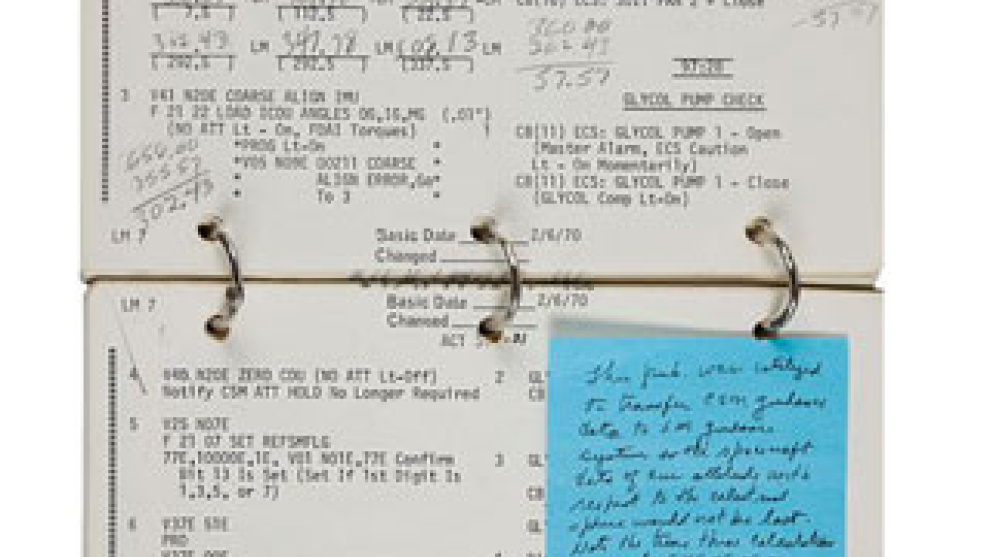 [ 7.5 ] [ 112.5 ] [ 22.5 ]
302.43 LM 347.78 LM LM
[ 292.5 ] [ 292.5 ] [ 337.5 ]
360 00
302 43
57.57
57 57
97:20
GLYCOL PUMP CHECK
3 V41 N20E COARSE ALIGN IMU
F 21 22 LOAD ICDU ANGLES OG,IG,MG (.01°)
(NO ATT Lt - On, FDAI Torques) 1
*PROG Lt-On *
*V05 N09E 00211 COARSE *
* ALIGN ERROR,Go*
* To 3 *
302.43
CB(11) ECS: GLYCOL PUMP 1 - Open
(Master Alarm, ECS Caution
Lt - On Momentarily)
CB(11) ECS: GLYCOL PUMP 1 - Close
(GLYCOL Comp Lt-On)
LM 7 Basic Date 2/6/70
Changed
LM 7 Basic Date 2/6/70
Changed
4 V40 N20E ZERO CDU (NO ATT Lt-Off) 2 GL
Notify CSM ATT HOLD No Longer Required CB
5 V25 N07E
F 21 07 SET REFSMFLG
77E,10000E,1E, V01 N01E,77E Confirm 3 GL
Bit 13 Is Set (Set If 1st Digit Is
1,3,5, or 7) CB
6 V37E 51E GL
PRO
V37E 00E
This page was utilized
to transfer CSM guidance
data to LM guidance
system so the spacecraft
data of our attitude with
respect to the celestial
sphere would not be lost.
Note the trans three calculation